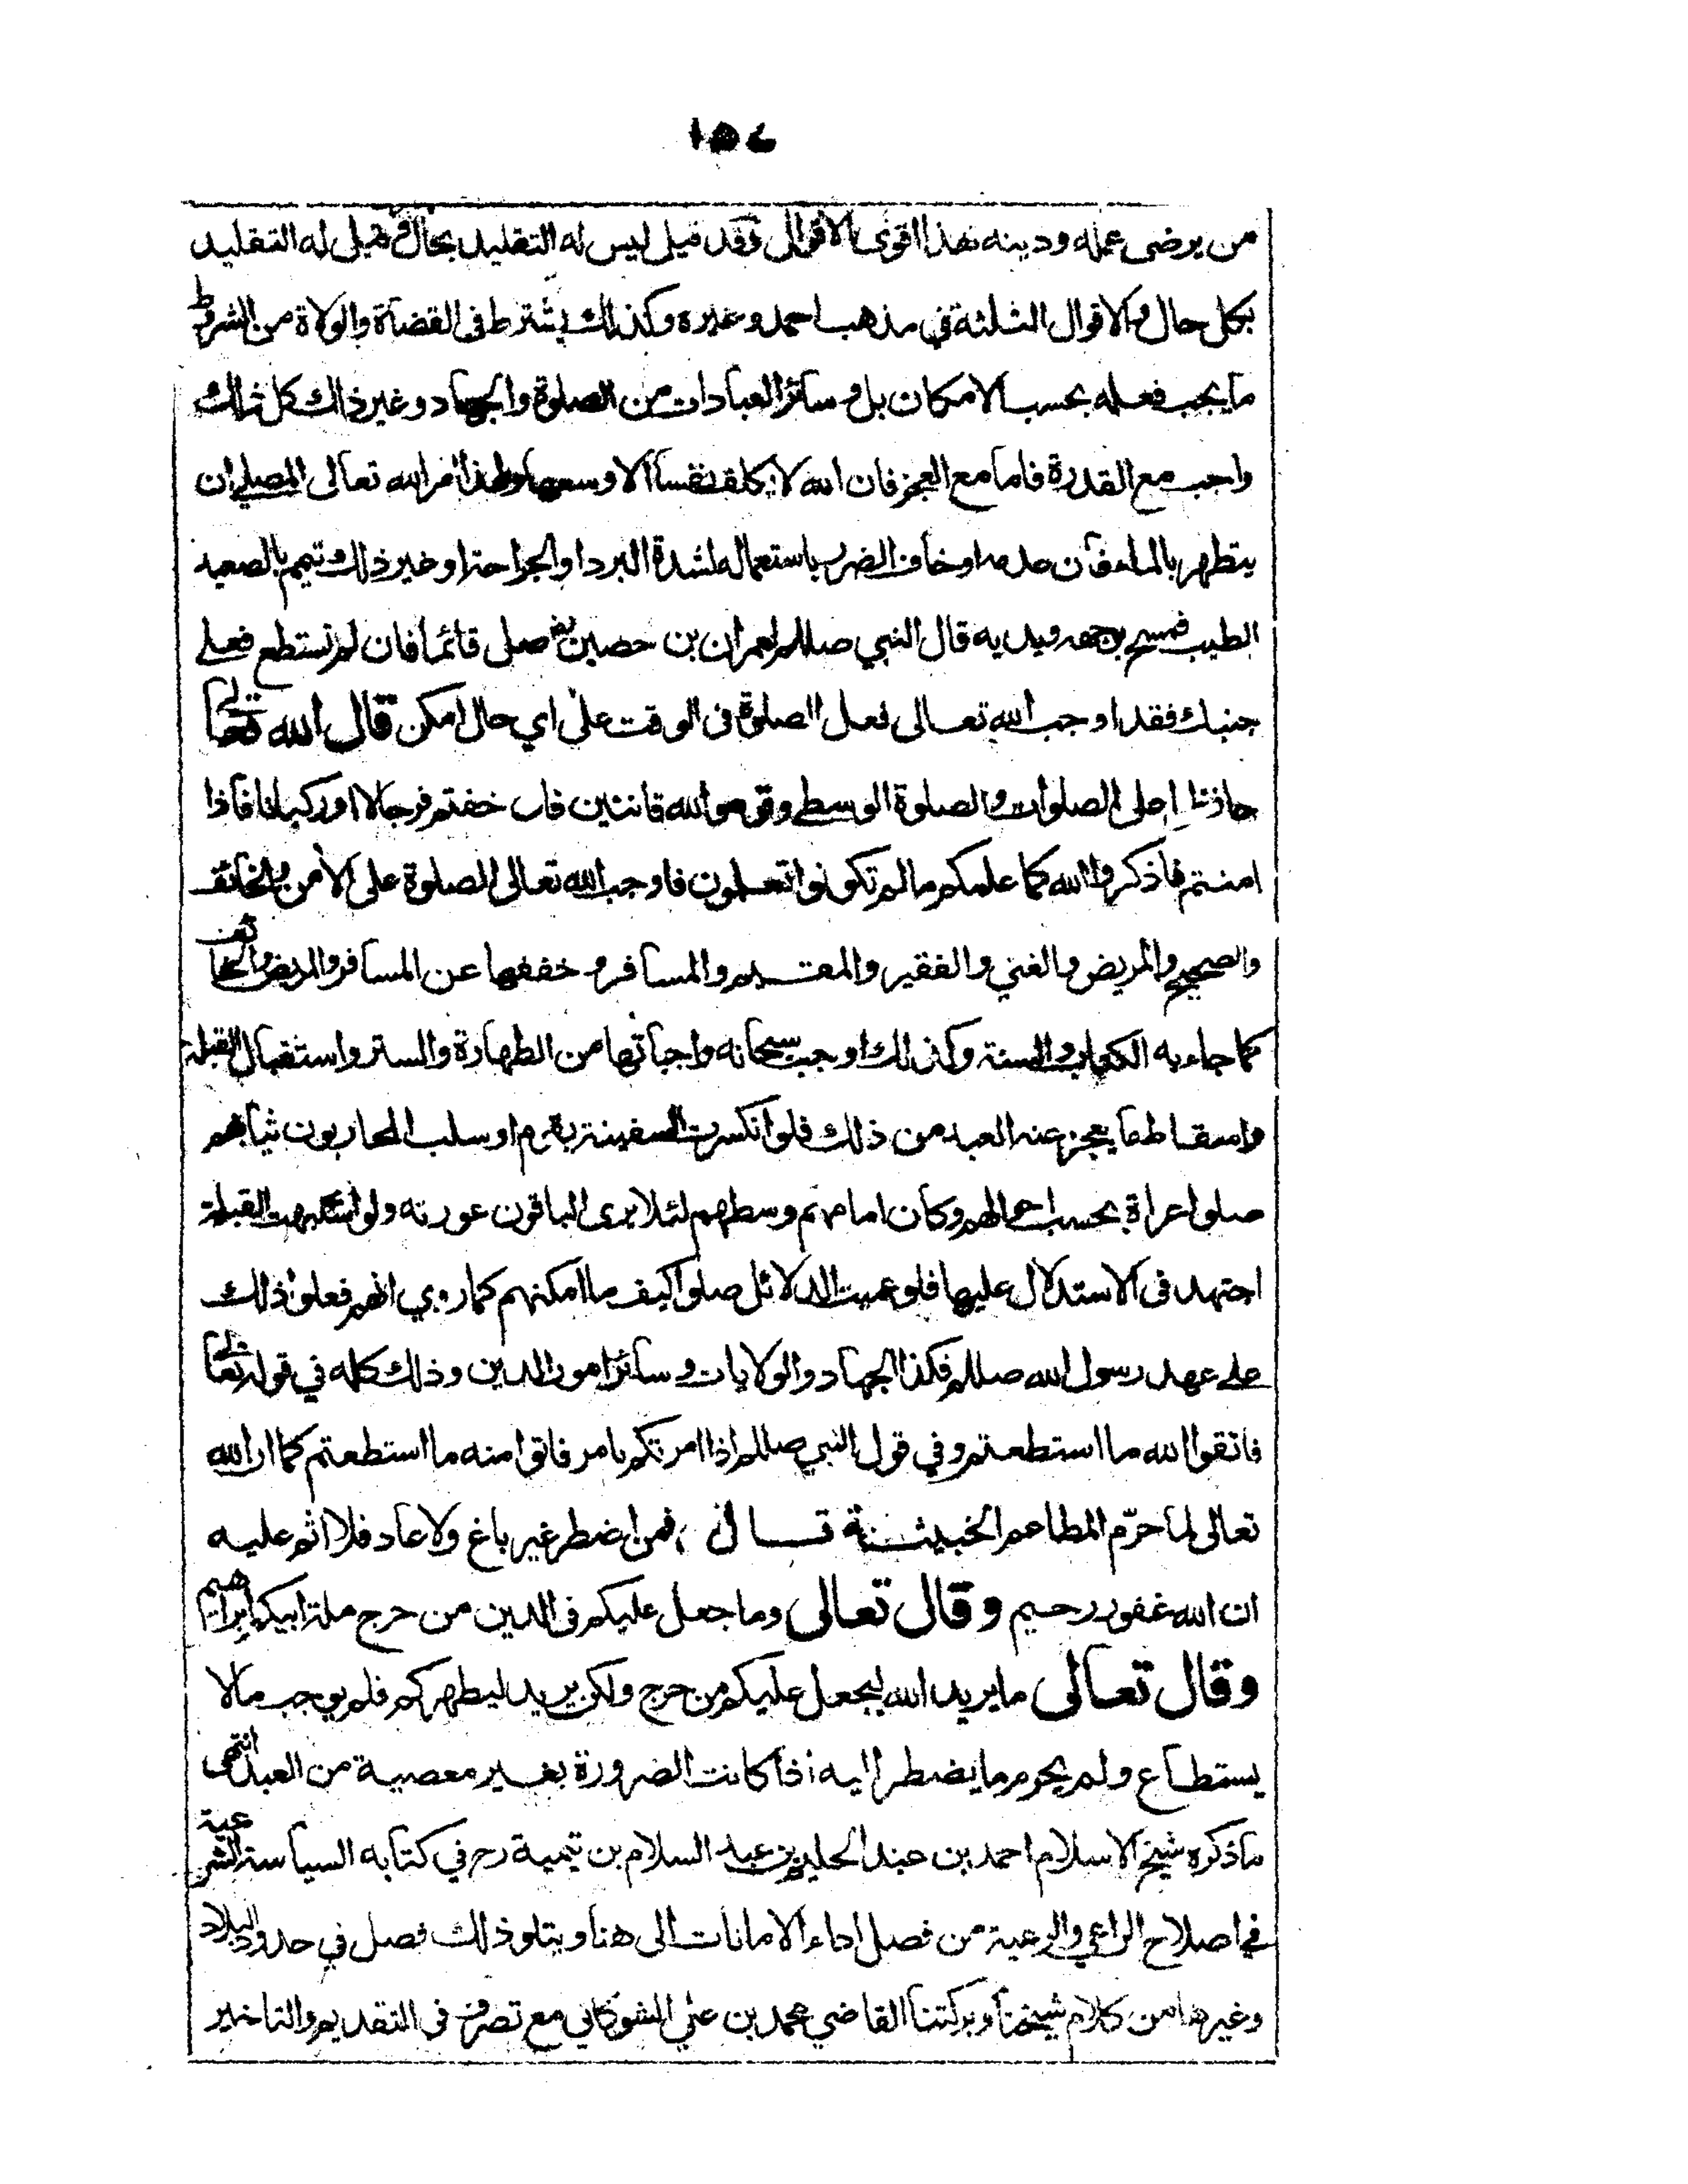 ١٥٤
من يرضى عمله ودينه هذا اقوى الاقوال وقد قيل ليس له التقليد بحال وقيل له التقليد
بكل حال والاقوال الثلثة في مذهب احمد وغيره وكذلك يشترط في القضاة والولاة من الشروط
ما يجب فعله بحسب الامكان بل وسائر العبادات من الصلوة والجهاد وغير ذلك كل ذلك
واجب مع القدرة فاما مع العجز فان الله لا يكلف نفسا الا وسعها ولهذا امر الله تعالى المصلي ان
يتطهر بالماء فان عدمه او خاف الضرر باستعماله لشدة البرد او الجراحة او غير ذلك تيمم بالصعيد
الطيب فمسح بوجهه ويديه قال النبي صللم لعمران بن حصين صلى قائما فان لم تستطع فعلى
جنبك فقد اوجب الله تعالى فعل الصلوة في الوقت على اي حال امكن قال الله تعالى
حافظوا على الصلوات والصلوة الوسطى وقوموا لله قانتين فان خفتم فرجالا او ركبانا فاذا
امنتم فاذكروا الله كما علمكم ما لم تكونوا تعلمون فاوجب الله تعالى الصلوة على الأمن والخائف
والصحيح والمريض والغني والفقير والمقيم والمسافر وخففها عن المسافر والمريض والخائف
كما جاء به الكتاب والسنة وكذلك اوجب سبحانه واجباتها من الطهارة والستر واستقبال القبلة
واسقاط ما يعجز عنه العبد من ذلك فلو انكسرت السفينة بقوم او سلب المحاربون ثيابهم
صلوا عراة بحسب احوالهم وكان امامهم وسطهم لئلا يرى الباقون عورته ولو اشتبهت القبلة
اجتهد في الاستدلال عليها فلو عميت الدلائل صلوا كيف ما امكنهم كما روي انهم فعلوا ذلك
على عهد رسول الله صللم فكذا الجهاد والولايات وسائر امور الدين وذلك كله في قوله تعالى
فاتقوا الله ما استطعتم وفي قول النبي صللم اذا امرتكم بامر فاتوا منه ما استطعتم كما ان الله
تعالى لما حرّم المطاعم الخبيثة قال فمن اضطر غير باغ ولا عاد فلا اثم عليه
ان الله غفور رحيم وقال تعالى وما جعل عليكم في الدين من حرج ملة ابيكم ابراهيم
وقال تعالى ما يريد الله ليجعل عليكم من حرج ولكن يريد ليطهركم فلم يوجب ما لا
يستطاع ولم يحرم ما يضطر اليه اذا كانت الضرورة بغير معصية من العبد انتهى
ما ذكره شيخ الاسلام احمد بن عبد الحليم بن عبد السلام بن تيمية رح في كتابه السياسة الشرعية
في اصلاح الراعي والرعية من فصل اداء الامانات الى هنا ويتلو ذلك فصل في حدود البلاد
وغيرها من كلام شيخنا وبركتنا القاضي محمد بن علي الشوكاني مع تصرف في التقديم والتاخير